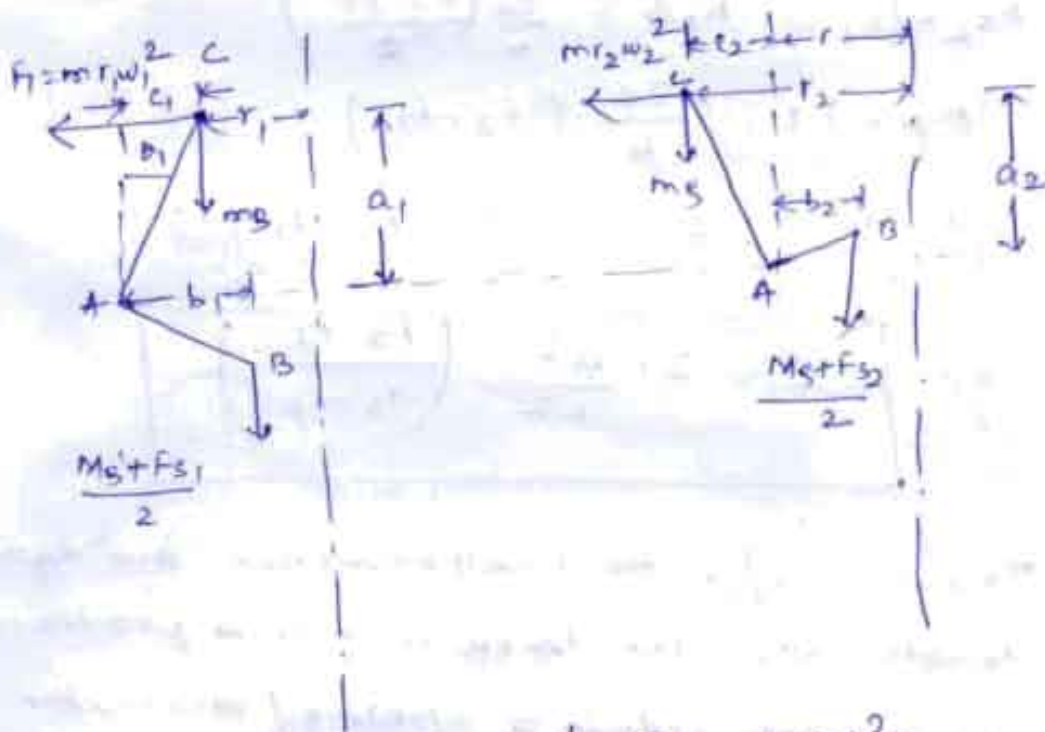 F₁ = m r₁ w₁² C
e₁
r₁
θ₁
mg
a₁
A
b₁
B
Mg + Fs₁
2
m r₂ w₂²
e₂
r
C
r₂
mg
a₂
b₂
B
A
Mg + Fs₂
2